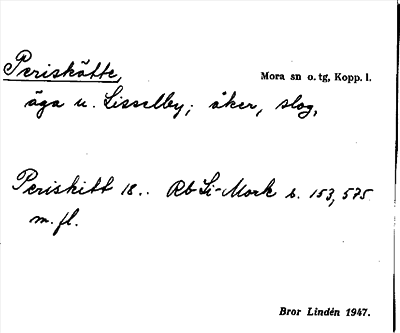 Periskätte, Mora sn o. tg, Kopp. l.
äga u. Lisselby; åker, slog,
Periskitt 18.. Rb Li-Mork s. 153, 575
m. fl.
Bror Lindén 1947.